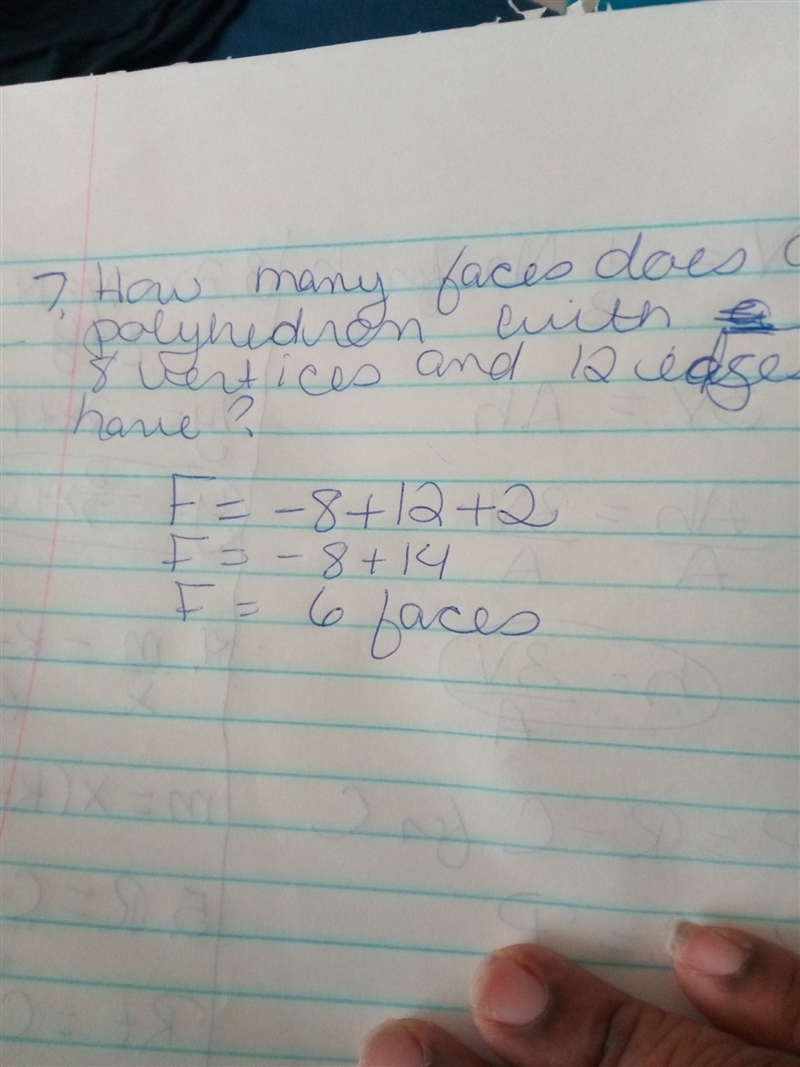 7. How many faces does
polyhedron with
8 vertices and 12 edges
have?
F = -8+12+2
F = -8+14
F = 6 faces